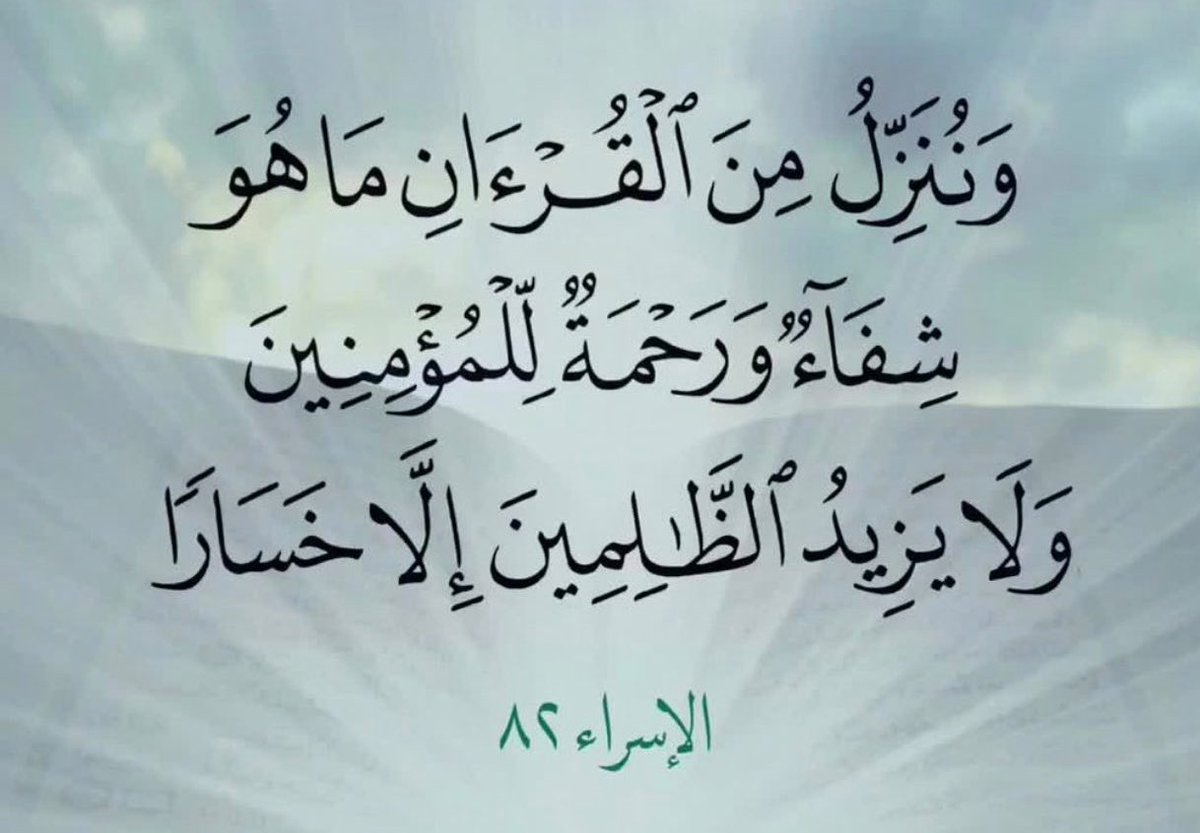 وَنُنَزِّلُ مِنَ ٱلْقُرْءَانِ مَا هُوَ
شِفَآءٌ وَرَحْمَةٌ لِّلْمُؤْمِنِينَ
وَلَا يَزِيدُ ٱلظَّٰلِمِينَ إِلَّا خَسَارًا
الإسراء ٨٢